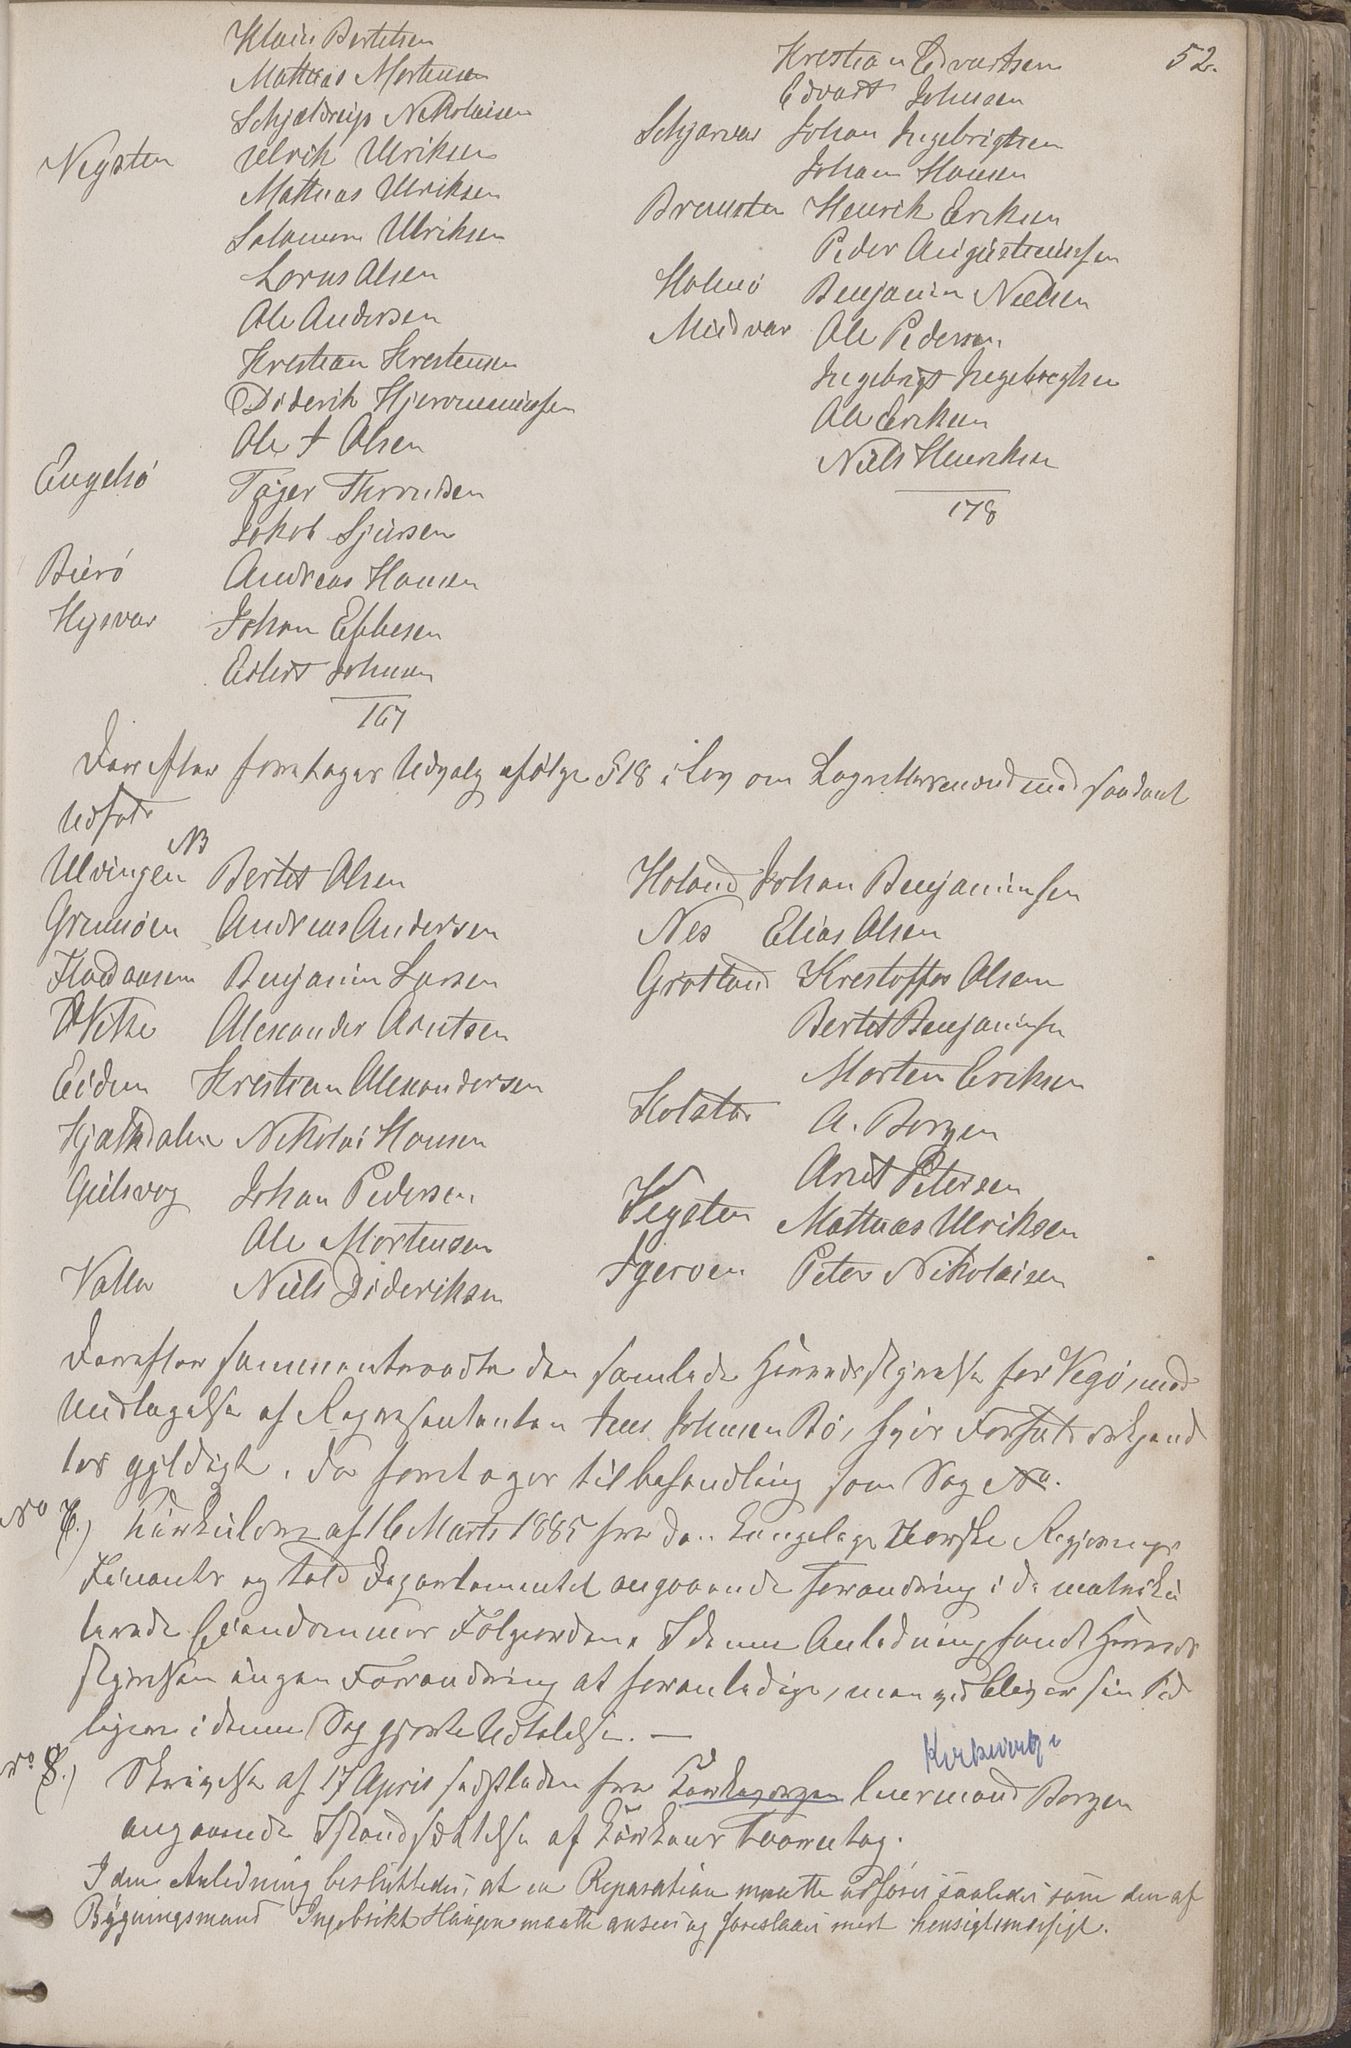 52.
Klaus Bertelsen
Mathias Mortensen
Schjeldrup Nikolaisen
Vegsten Ulrik Ulriksen
Mathias Ulriksen
Salamon Ulriksen
Lorns Olsen
Ole Andersen
Kristian Kristensen
Diderik Hjeronemussen
Ole J Olsen
Engelsö Töger Throndsen
Jakob Sjursen
Burö Andreas Hansen
Hysvar Johan Ebbesen
Eilert Johnsen
167
Krestian Edvartsen
Edvart Johnsen
Schjærvær Johan Ingebrigtsen
Johan Hansen
Bremsten Henrik Eriksen
Peder Augustinussen
Holmö Benjamin Nielsen
Mudvær Ole Pedersen
Ingebrigt Ingebregtsen
Ole Eriksen
Niels Henriksen
178
Derefter foretages Udvalg ifølge § 18 i Lov om Lagrettesmænd med saadant
Udfald
NB
Ulvingen Bertel Olsen
Grunnöen Andreas Andersen
Flodaasen Benjamin Larsen
Vike Alexander Arntsen
Eidem Krestian Alexandersen
Hjaltdalen Nikolai Hansen
Gulsvog Johan Pedersen
Ole Mortensen
Valla Niels Dideriksen
Holand Johan Benjaminsen
Nes Elias Olsen
Grotland Krestoffer Olsen
Bertel Benjaminsen
Morten Eriksen
Holstar A. Borgen
Arnt Petersen
Vegsten Mathias Ulriksen
Igeröen Peter Nikolaisen
Derefter sammentraadte den samlede Herredsstyrelse for Vegö, med
Undtagelse af Repræsentanten Jens Johnsen Bö, hvis Forfald erkjend
tes gyldigt. Da foretages til behandling som Sag No.
No 7.) Cirkulære af 16 Marts 1885 fra den kongelige Norske Regjerings
Finants og Told Departementet angaaende forandring i de matriku
lerede Eiendommers Følgeorden. I denne Anledning fandt Herreds
styrelsen ingen Forandring at foranledige, men vedbliver sin tid
ligere i denne Sag gjorte Udtalelse. —
No 8.) Skrivelse af 17 April sidstleden fra Kirkeværgen Lensmand Borgen
Kirkeverge
angaaende Istandsættelse af Kirkens Taarntag.
I den Anledning besluttedes, at en Reparation maatte udføres saaledes som den af
Bygningsmand Ingebrikt Haugen maatte ansees og foreslaaes mest hensigtsmæssigt.